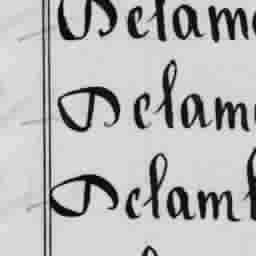 Delam
Delam
Delamb